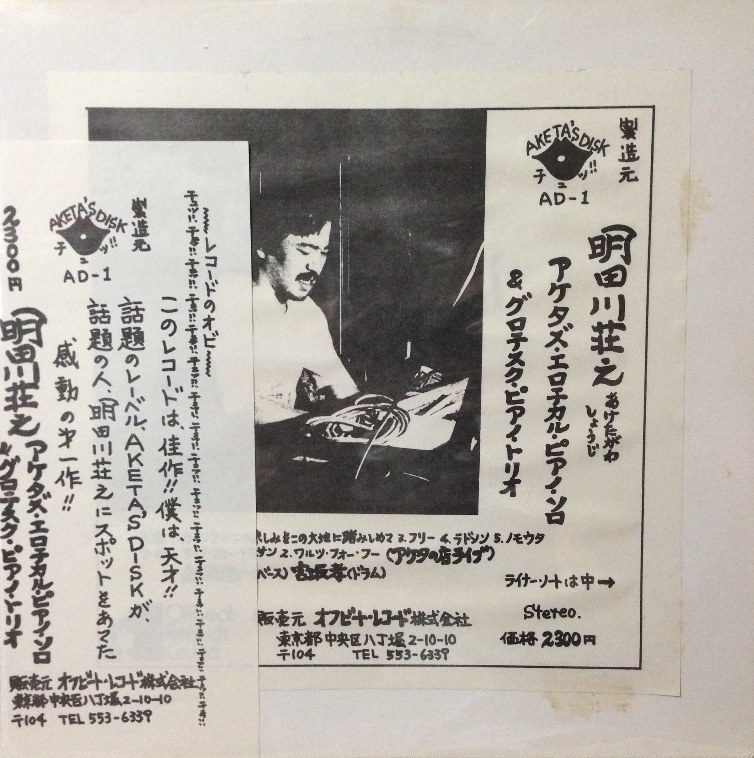 製造元
AKETA'S DISK
チュッ!!
AD-1
明田川荘之
あけたがわ
しょうじ
アケタズ・エロチカル・ピアノ・ソロ
&グロテスク・ピアノ・トリオ
しみをこの大地に踏みしめて 3.フリー 4.テドシン 5.ノモウタ
サン 2.ワルツ・フォー・フー(アケタの店ライブ)
ベース)宮坂孝(ドラム)
ライナーノートは中→
Stereo.
価格 2300円
販売元 オフビート・レコード株式会社
東京都中央区八丁堀2-10-10
〒104 TEL 553-6339
レコードのオビ
このレコードは、佳作!!僕は、天才!!
話題のレーベル、AKETA'S DISKが、
話題の人、明田川荘之にスポットをあてた
感動の第一作!!
製造元
AKETA'S DISK
チュッ!!
AD-1
2300円
明田川荘之
アケタズ・エロチカル・ピアノ・ソロ
&グロテスク・ピアノ・トリオ
販売元 オフビート・レコード株式会社
東京都中央区八丁堀2-10-10
〒104 TEL 553-6339